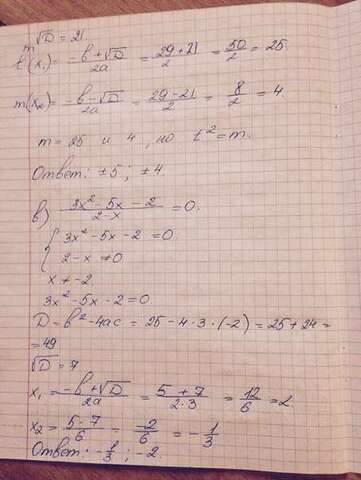 m √D = 21
t(x₁) = -b + √D / 2a = 29 + 21 / 2 = 50 / 2 = 25
m(x₂) = -b - √D / 2a = 29 - 21 / 2 = 8 / 2 = 4.
m = 25 и 4, но t² = m.
Ответ: ±5; ±4
в) 3x² - 5x - 2 / 2 - x = 0.
{ 3x² - 5x - 2 = 0
2 - x ≠ 0
x ≠ -2
3x² - 5x - 2 = 0
D = b² - 4ac = 25 - 4 · 3 · (-2) = 25 + 24 =
= 49
√D = 7
x₁ = -b + √D / 2a = 5 + 7 / 2·3 = 12 / 6 = 2
x₂ = 5 - 7 / 6 = -2 / 6 = - 1 / 3
Ответ: - 1/3; -2.